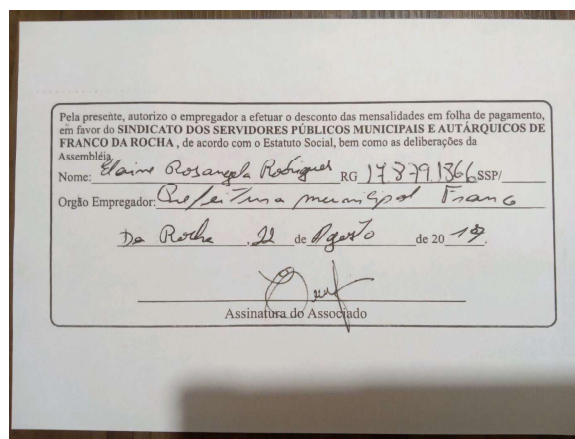 Pela presente, autorizo o empregador a efetuar o desconto das mensalidades em folha de pagamento,
em favor do SINDICATO DOS SERVIDORES PÚBLICOS MUNICIPAIS E AUTÁRQUICOS DE
FRANCO DA ROCHA , de acordo com o Estatuto Social, bem como as deliberações da
Assembléia.
Nome: Elaine Rosangela Rodrigues RG 17.879.1366 SSP/
Orgão Empregador: Prefeitura municipal Franco
Da Rocha , 22 de Agosto de 20 19.
Assinatura do Associado